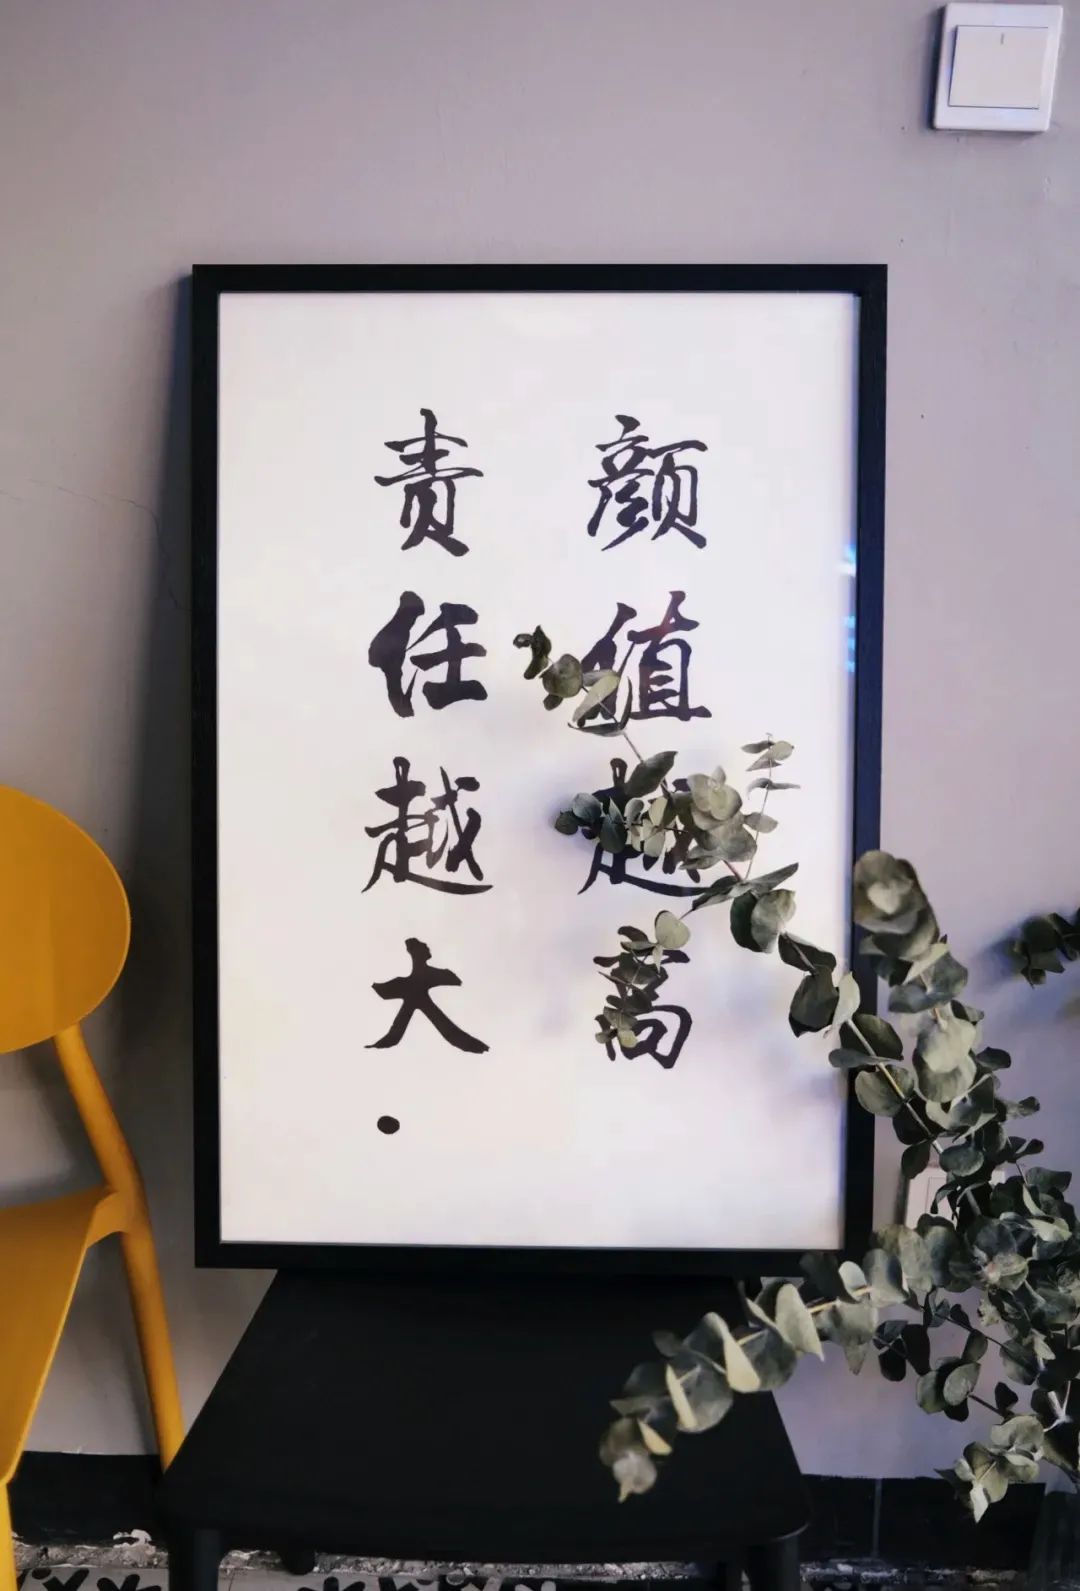 颜值越高
责任越大.